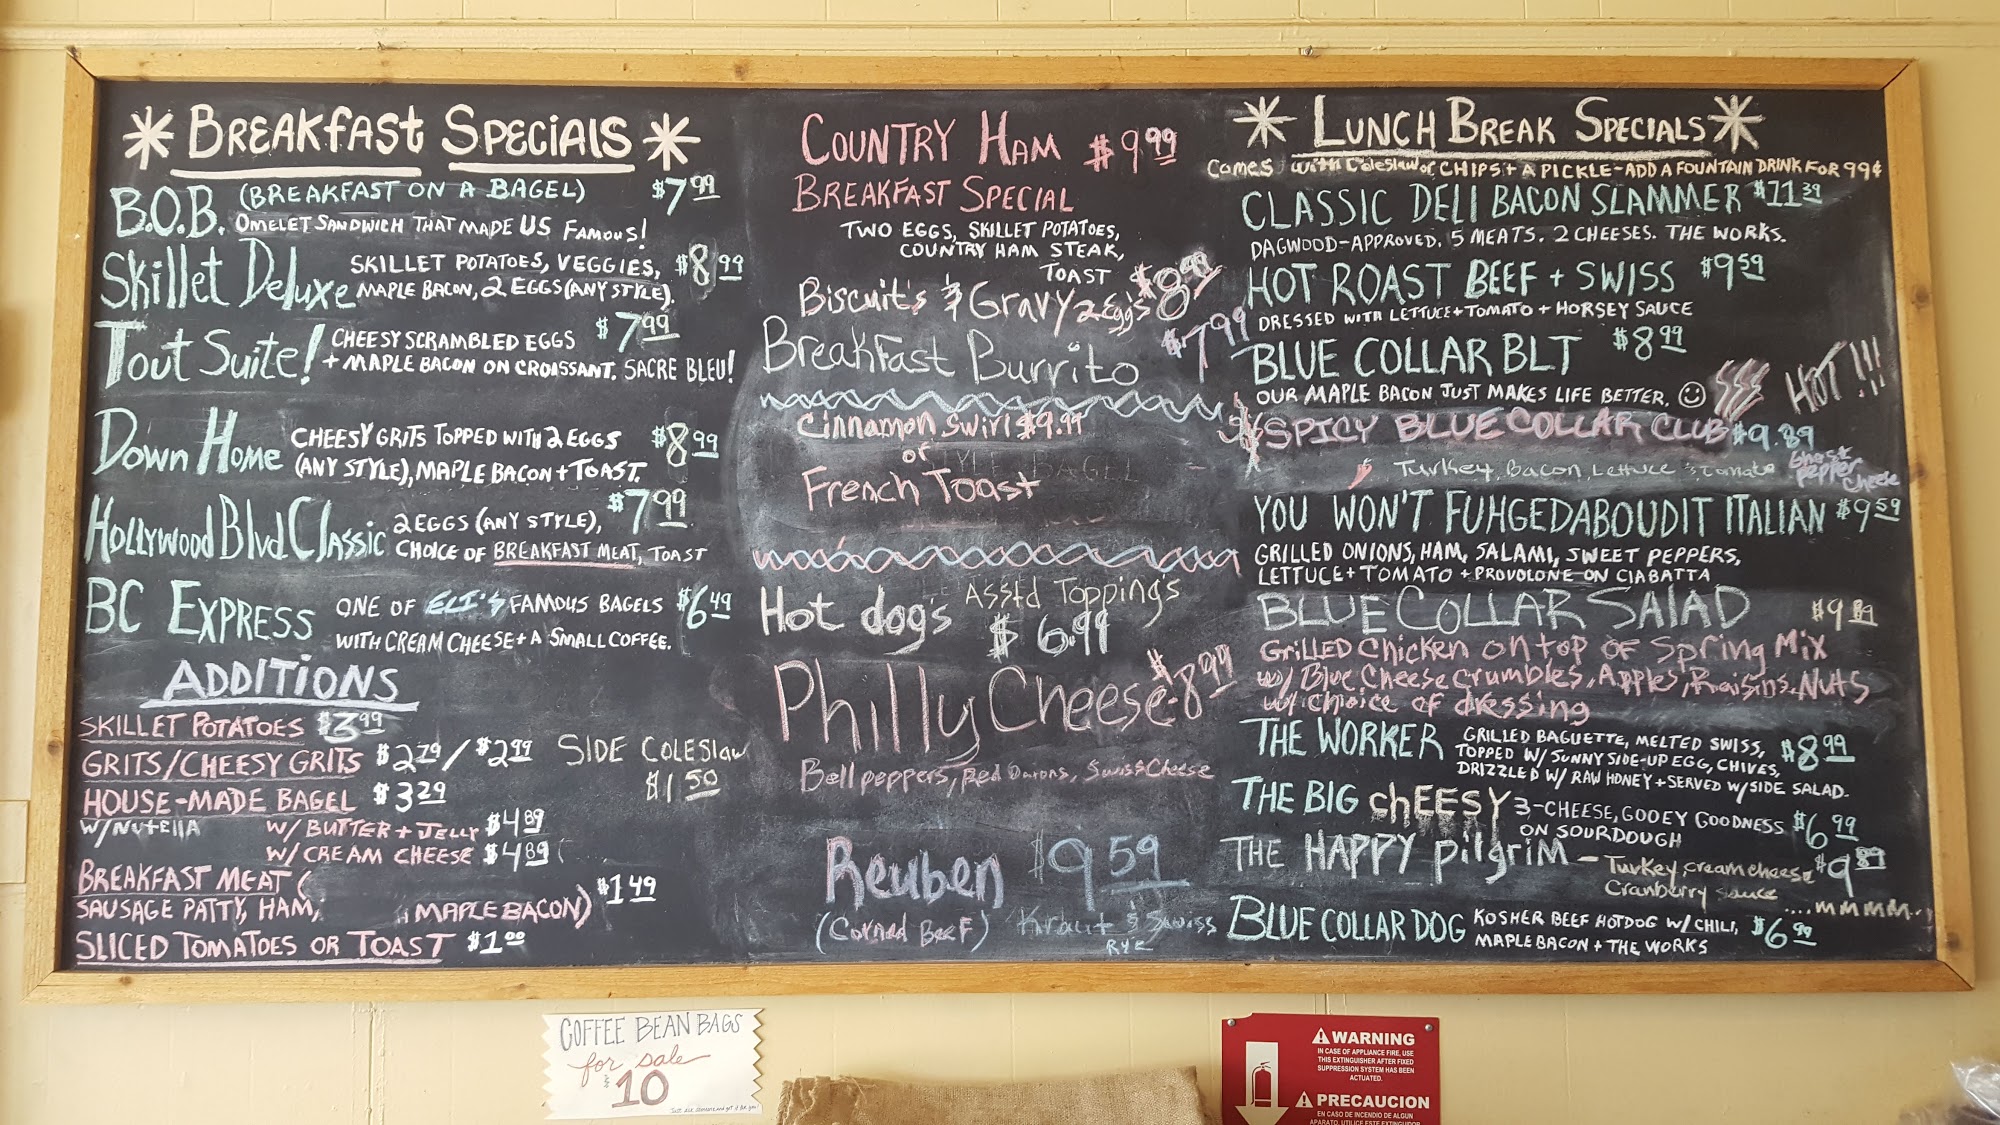 BREAKFAST SPECIALS
B.O.B. (BREAKFAST ON A BAGEL) $7.99
OMELET SANDWICH THAT MADE US FAMOUS!
Skillet Deluxe SKILLET POTATOES, VEGGIES, $8.99
MAPLE BACON, 2 EGGS (ANY STYLE).
Tout Suite! CHEESY SCRAMBLED EGGS $7.99
+ MAPLE BACON ON CROISSANT. SACRE BLEU!
DOWN HOME CHEESY GRITS TOPPED WITH 2 EGGS $8.99
(ANY STYLE), MAPLE BACON + TOAST.
HOLLYWOOD BLVD CLASSIC 2 EGGS (ANY STYLE), $7.99
CHOICE OF BREAKFAST MEAT, TOAST
BC EXPRESS ONE OF ELI'S FAMOUS BAGELS $6.49
WITH CREAM CHEESE + A SMALL COFFEE.
ADDITIONS
SKILLET POTATOES $3.99
GRITS/CHEESY GRITS $2.79/$2.99
HOUSE-MADE BAGEL $3.29
W/NUTELLA W/ BUTTER + JELLY $4.89
W/ CREAM CHEESE $4.89
BREAKFAST MEAT (
SAUSAGE PATTY, HAM, MAPLE BACON) $1.49
SLICED TOMATOES OR TOAST $1.00
SIDE COLESLAW
$1.50
COUNTRY HAM $9.99
BREAKFAST SPECIAL
TWO EGGS, SKILLET POTATOES,
COUNTRY HAM STEAK,
TOAST
Biscuit's & Gravy 2 Egg's $8.99
Breakfast Burrito $7.99
Cinnamon Swirl $9.99
or
French Toast
Hot dog's Asst'd Topping's
$6.99
Philly Cheese $8.99
Bell peppers, Red Onions, Swiss Cheese
Reuben $9.59
(Corned Beef) Kraut & Swiss
RYE
LUNCH BREAK SPECIALS
Comes with Coleslaw or CHIPS + A PICKLE - ADD A FOUNTAIN DRINK FOR 99¢
CLASSIC DELI BACON SLAMMER $11.39
DAGWOOD-APPROVED. 5 MEATS. 2 CHEESES. THE WORKS.
HOT ROAST BEEF + SWISS $9.59
DRESSED WITH LETTUCE + TOMATO + HORSEY SAUCE
BLUE COLLAR BLT $8.99
OUR MAPLE BACON JUST MAKES LIFE BETTER. HOT!!!
SPICY BLUE COLLAR CLUB $9.89
Turkey, Bacon, Lettuce & tomato Ghost Pepper Cheese
YOU WON'T FUHGEDABOUDIT ITALIAN $9.59
GRILLED ONIONS, HAM, SALAMI, SWEET PEPPERS,
LETTUCE + TOMATO + PROVOLONE ON CIABATTA
BLUE COLLAR SALAD $9.89
GRILLED CHICKEN ON TOP OF SPRING MIX
w/ Blue Cheese crumbles, Apples, Raisins, Nuts
w/ choice of dressing
THE WORKER GRILLED BAGUETTE, MELTED SWISS, $8.99
TOPPED W/ SUNNY SIDE-UP EGG, CHIVES,
DRIZZLED W/ RAW HONEY + SERVED W/ SIDE SALAD.
THE BIG CHEESY 3-CHEESE, GOOEY GOODNESS $6.99
ON SOURDOUGH
THE HAPPY PILGRIM - Turkey, cream cheese $9.89
Cranberry sauce
....MMMM..
BLUE COLLAR DOG KOSHER BEEF HOTDOG W/ CHILI, $6.99
MAPLE BACON + THE WORKS
COFFEE BEAN BAGS
for sale
$10
WARNING
IN CASE OF APPLIANCE FIRE, USE
THIS EXTINGUISHER AFTER FIXED
SUPPRESSION SYSTEM HAS BEEN
ACTUATED.
PRECAUCION
EN CASO DE INCENDIO DE ALGUN
APARATO, UTILICE ESTE EXTINGUIDOR